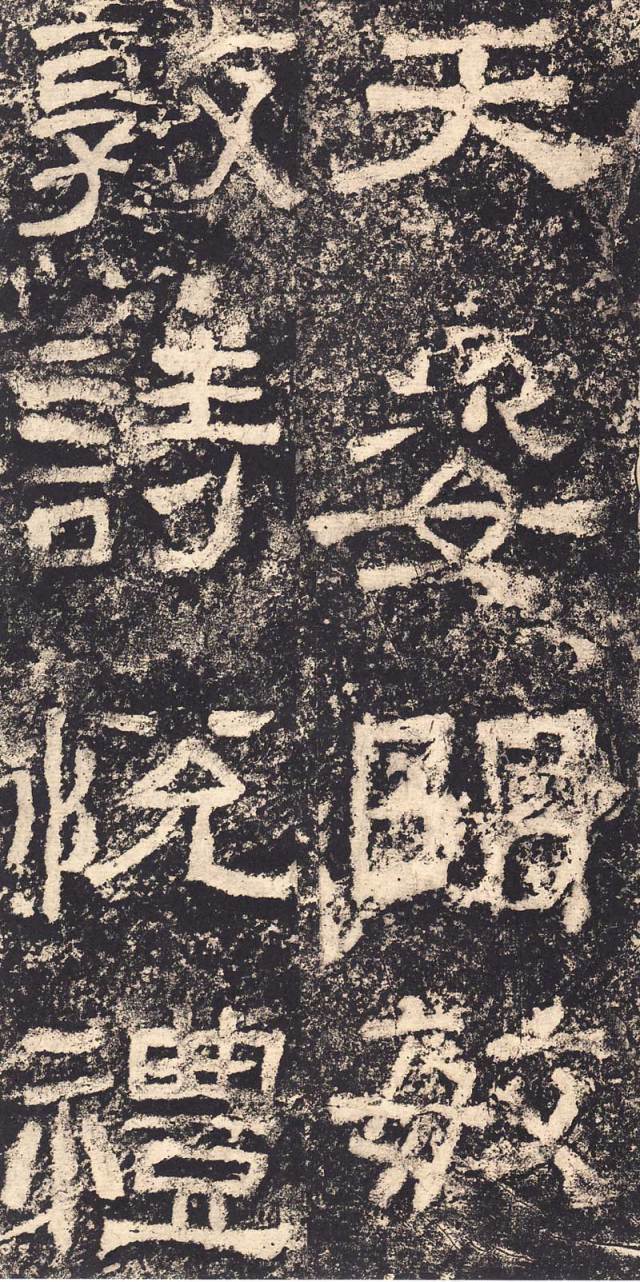 天姿明敏
敦詩悅禮